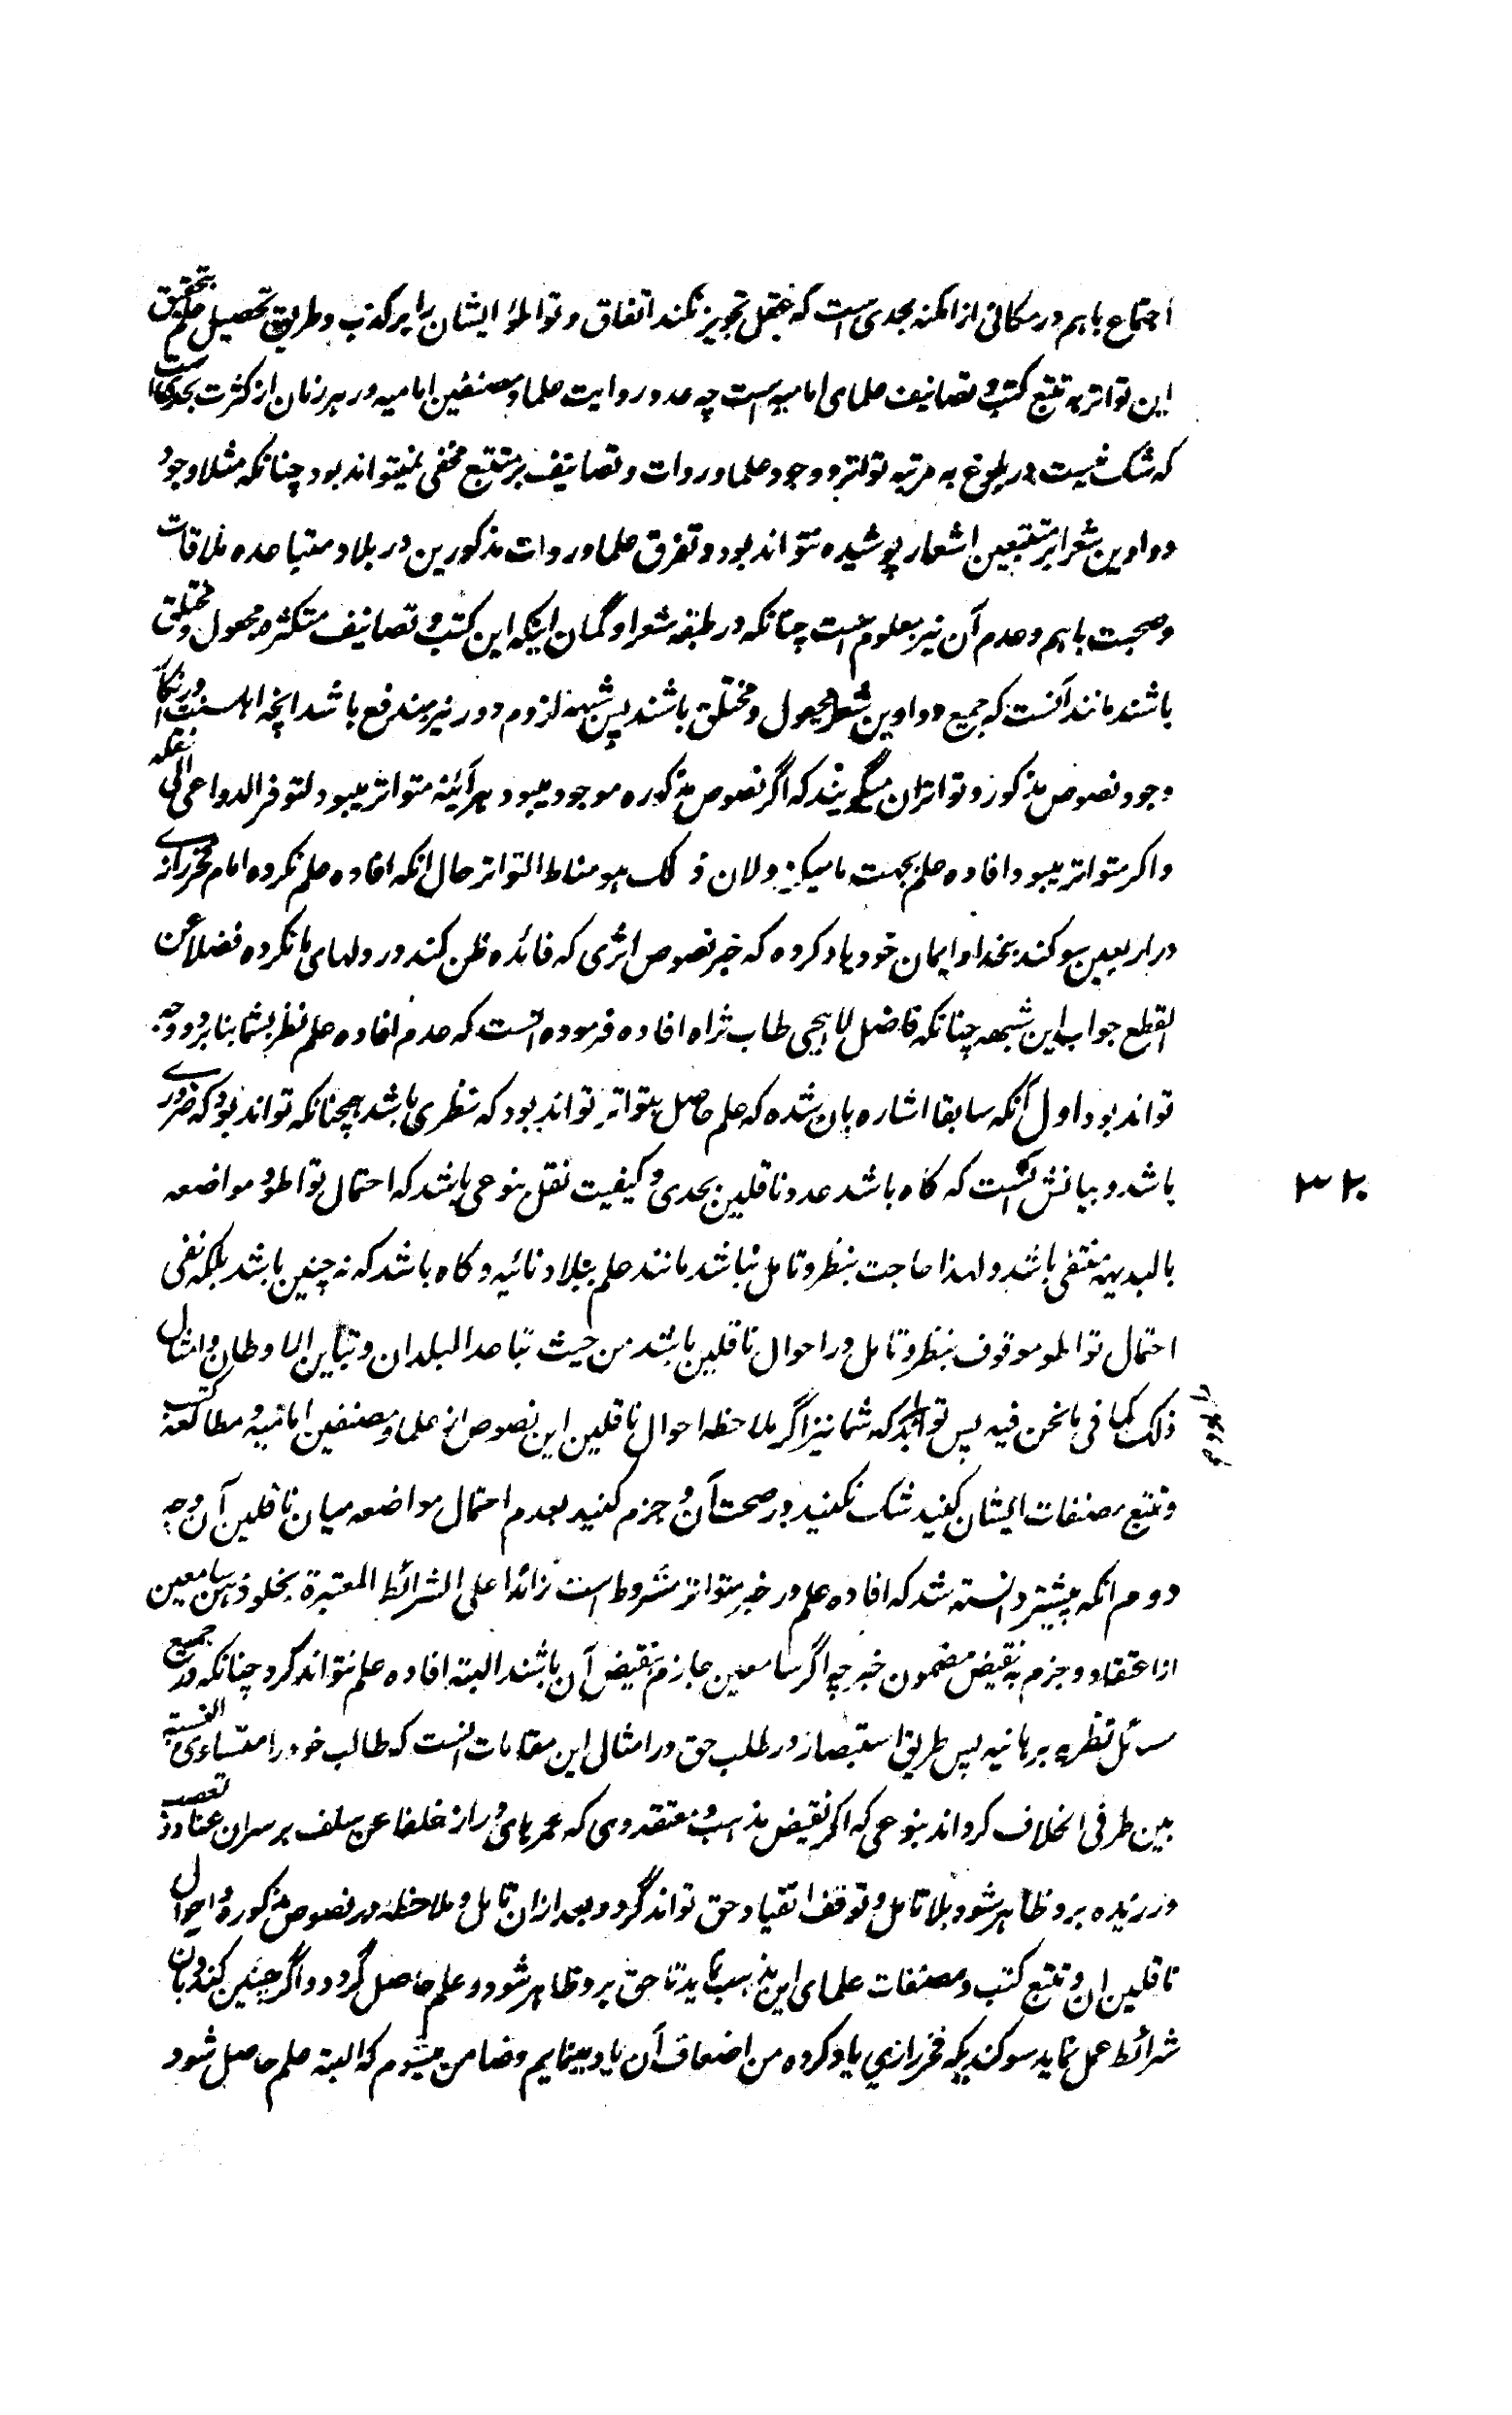 اجتماع باهم در مکانی از امکنه بحدی است که عقل تجویز نکند اتفاق و تواطؤ ایشان را بر کذب و طریق تحصیل علم بتحقیق
این تواتر به تتبع کتب و تصانیف علمای امامیه است چه عدد روایت علما و مصنفین امامیه در هر زمان از کثرت بحدی است
که شک نیست در بلوغ به مرتبه تواتر و وجود علما و روات و تصانیف بر متتبع مخفی نمیتواند بود چنانکه مثلا وجود
دواوین شعرا بر متتبعین اشعار پوشیده نتواند بود و تفرق علما و روات مذکورین در بلاد متباعده ملاقات
و صحبت باهم و عدم آن نیز معلوم است چنانکه در طبقه شعرا و گمان اینکه این کتب و تصانیف متکثره مجعول و مختلق
باشند مانند آنست که جمیع دواوین شعرا مجعول و مختلق باشند پس شبهه لزوم دور نیز مندفع باشد انچه اهلسنت در انکار
وجود نصوص مذکور و تواتر ان میگویند که اگر نصوص مذکوره موجود میبود هر آئینه متواتر میبود لتوفر الدواعی الی نقله
و اکر متواتر میبود افاده علم بجهت ما میکرد لان ذلک هو مناط التواتر حال انکه افاده علم نکرده امام فخر رازی
در اربعین سوکند بخدا و ایمان خود یاد کرده که خبر نصوص اثری که فائده ظن کند در دلهای ما نکرده فضلا عن
القطع جواب این شبهه چنانکه فاضل لاهیجی طاب ثراه افاده فرموده انست که عدم افاده علم نظر بشما بنا بر دو وجه
تواند بود اول آنکه سابقا اشاره بان شده که علم حاصل بتواتر تواند بود که نظری باشد همچنانکه تواند بود که ضروری
باشد و بیانش انست که کاه باشد عدد ناقلین بحدی و کیفیت نقل بنوعی باشد که احتمال تواطؤ و مواضعه
بالبدیهه منتفی باشد و لهذا حاجت بنظر و تامل نباشد مانند علم ببلاد نائیه و کاه باشد که نه چنین باشد بلکه نفی
احتمال تواطؤ موقوف بنظر و تامل در احوال ناقلین باشد من حیث تباعد البلدان و تباین الاوطان و امثال
ذلک کما فی ما نحن فیه پس تواند بود که شما نیز اگر ملاحظه احوال ناقلین این نصوص از علما و مصنفین امامیه و مطالعه کتب
و تتبع مصنفات ایشان کنید شک نکنید در صحت آن و جزم کنید بعدم احتمال مواضعه میان ناقلین آن وجه
دوم انکه پیشتر دانسته شد که افاده علم در خبر متواتر مشروط است زائدا علی الشرائط المعتبرة بخلو ذهن سامعین
از اعتقاد و جزم به نقیض مضمون خبر چه اگر سامعین جازم بنقیض آن باشند البته افاده علم نتواند کرد چنانکه در جمیع
مسائل نظریه برهانیه پس طریق استبصار در طلب حق در امثال این مقامات انست که طالب خود را متساوی النسبه
بین طرفی الخلاف کرداند بنوعی که اکر نقیض مذهب و معتقد وی که عمرهای دراز خلفا عن سلف بر سران عناد و تعصب
ورزیده برو ظاهر شود بلا تامل و توقف انقیاد حق تواند گرد و بعد ازان تامل و ملاحظه در نصوص مذکوره و احوال
ناقلین ان و تتبع کتب و مصنفات علمای این مذهب نماید تا حق برو ظاهر شود و علم حاصل گردد و اگر چنین کند و بان
شرائط عمل نماید سوکندیکه فخر رازی یاد کرده من اضعاف آن یاد مینمایم و ضامن میشوم که البته علم حاصل شود
۳۲۰